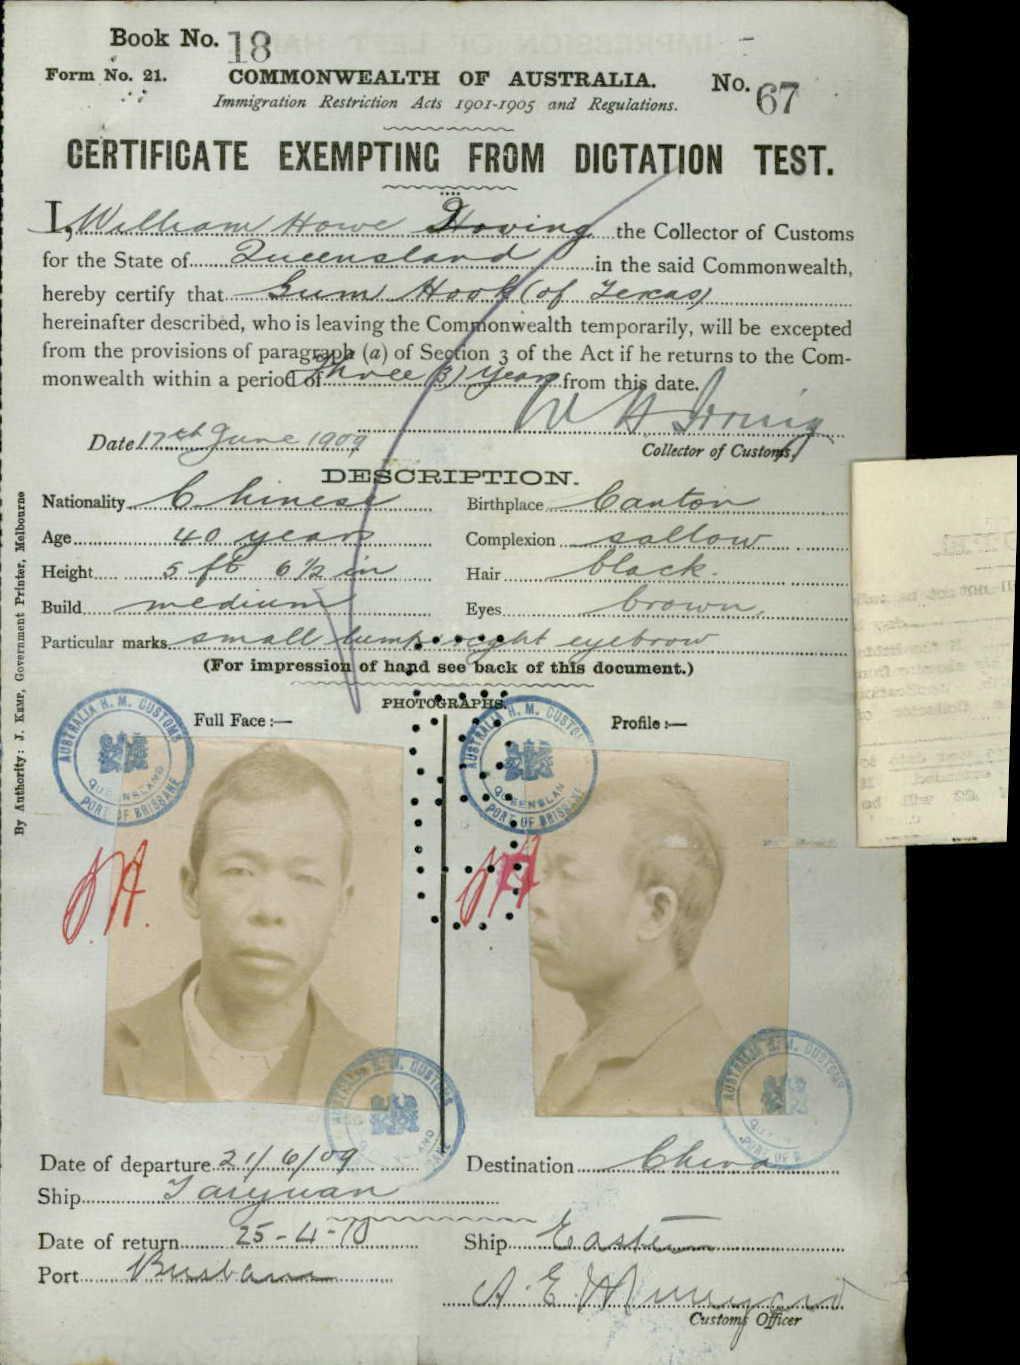 Book No. 18
Form No. 21. COMMONWEALTH OF AUSTRALIA. No. 67
Immigration Restriction Acts 1901-1905 and Regulations.
CERTIFICATE EXEMPTING FROM DICTATION TEST.
I, William Howe Irving the Collector of Customs
for the State of Queensland in the said Commonwealth,
hereby certify that Gum Hook (of Texas)
hereinafter described, who is leaving the Commonwealth temporarily, will be excepted
from the provisions of paragraph (a) of Section 3 of the Act if he returns to the Com-
monwealth within a period of three (3) years from this date.
W H Irving
Date 17th June 1909
Collector of Customs,
DESCRIPTION.
Nationality Chinese Birthplace Canton
Age 40 years Complexion sallow
Height 5 ft 6 1/2 in Hair black.
Build medium Eyes brown
Particular marks small lump right eyebrow
(For impression of hand see back of this document.)
PHOTOGRAPHS.
Full Face :— Profile :—
AUSTRALIA H. M. CUSTOMS QUEENSLAND PORT OF BRISBANE
AUSTRALIA H. M. CUSTOMS QUEENSLAND PORT OF BRISBANE
AUSTRALIA H. M. CUSTOMS
AUSTRALIA H. M. CUSTOMS
By Authority: J. KEMP, Government Printer, Melbourne
Date of departure 21/6/09 Destination China
Ship Taiyuan
Date of return 25-4-10 Ship Eastern
Port Brisbane
Customs Officer